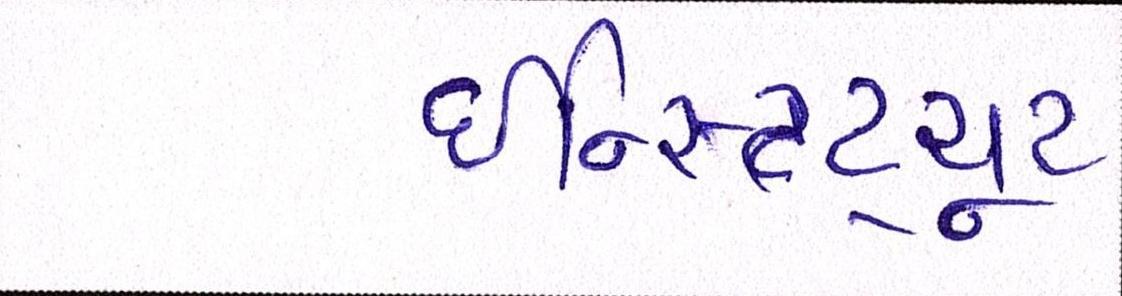 ઈન્સ્ટિટ્યૂટ